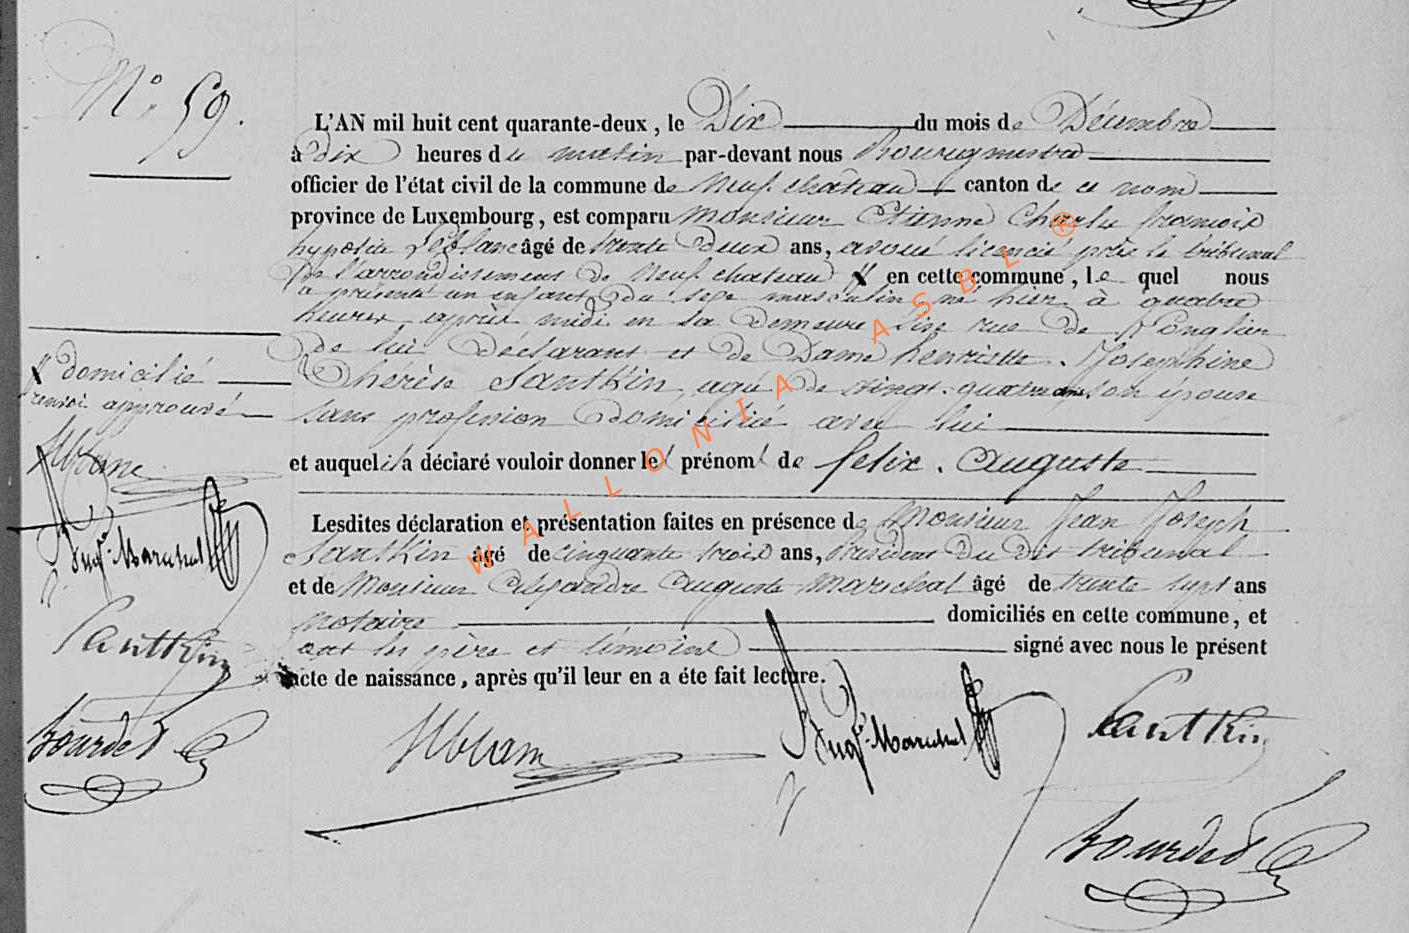 N° 59.
L'AN mil huit cent quarante-deux, le Dix du mois de Décembre
à dix heures du matin par-devant nous Bourgmestre
officier de l'état civil de la commune de Neufchâteau canton de ce nom
province de Luxembourg, est comparu Monsieur Etienne Charles françois
hypolite Leblanc âgé de trente deux ans, avoué licencié près le tribunal
de l'arrondissement de Neufchateau X en cette commune, le quel nous
a présenté un enfant du sexe masculin né hier à quatre
heures après midi en sa demeure sise rue de
de lui déclarant et de Dame henriette Josephine
Thérèse Santkin, agée de vingt-quatre ans son épouse
sans profession domiciliée avec lui
et auquel il a déclaré vouloir donner les prénoms de felix. Auguste
Lesdites déclaration et présentation faites en présence de Monsieur Jean Joseph
Santkin âgé de cinquante trois ans, Président du dit tribunal
et de Monsieur Alexandre Auguste Maréchal âgé de trente sept ans
notaire domiciliés en cette commune, et
ont les père et témoins signé avec nous le présent
acte de naissance, après qu'il leur en a éte fait lecture.
X domicilié
renvoi approuvé
Augte Marechal
Santkin
Bourdet
Augte Marechal
Santkin
Bourdet
WALLONIA ASBL ®